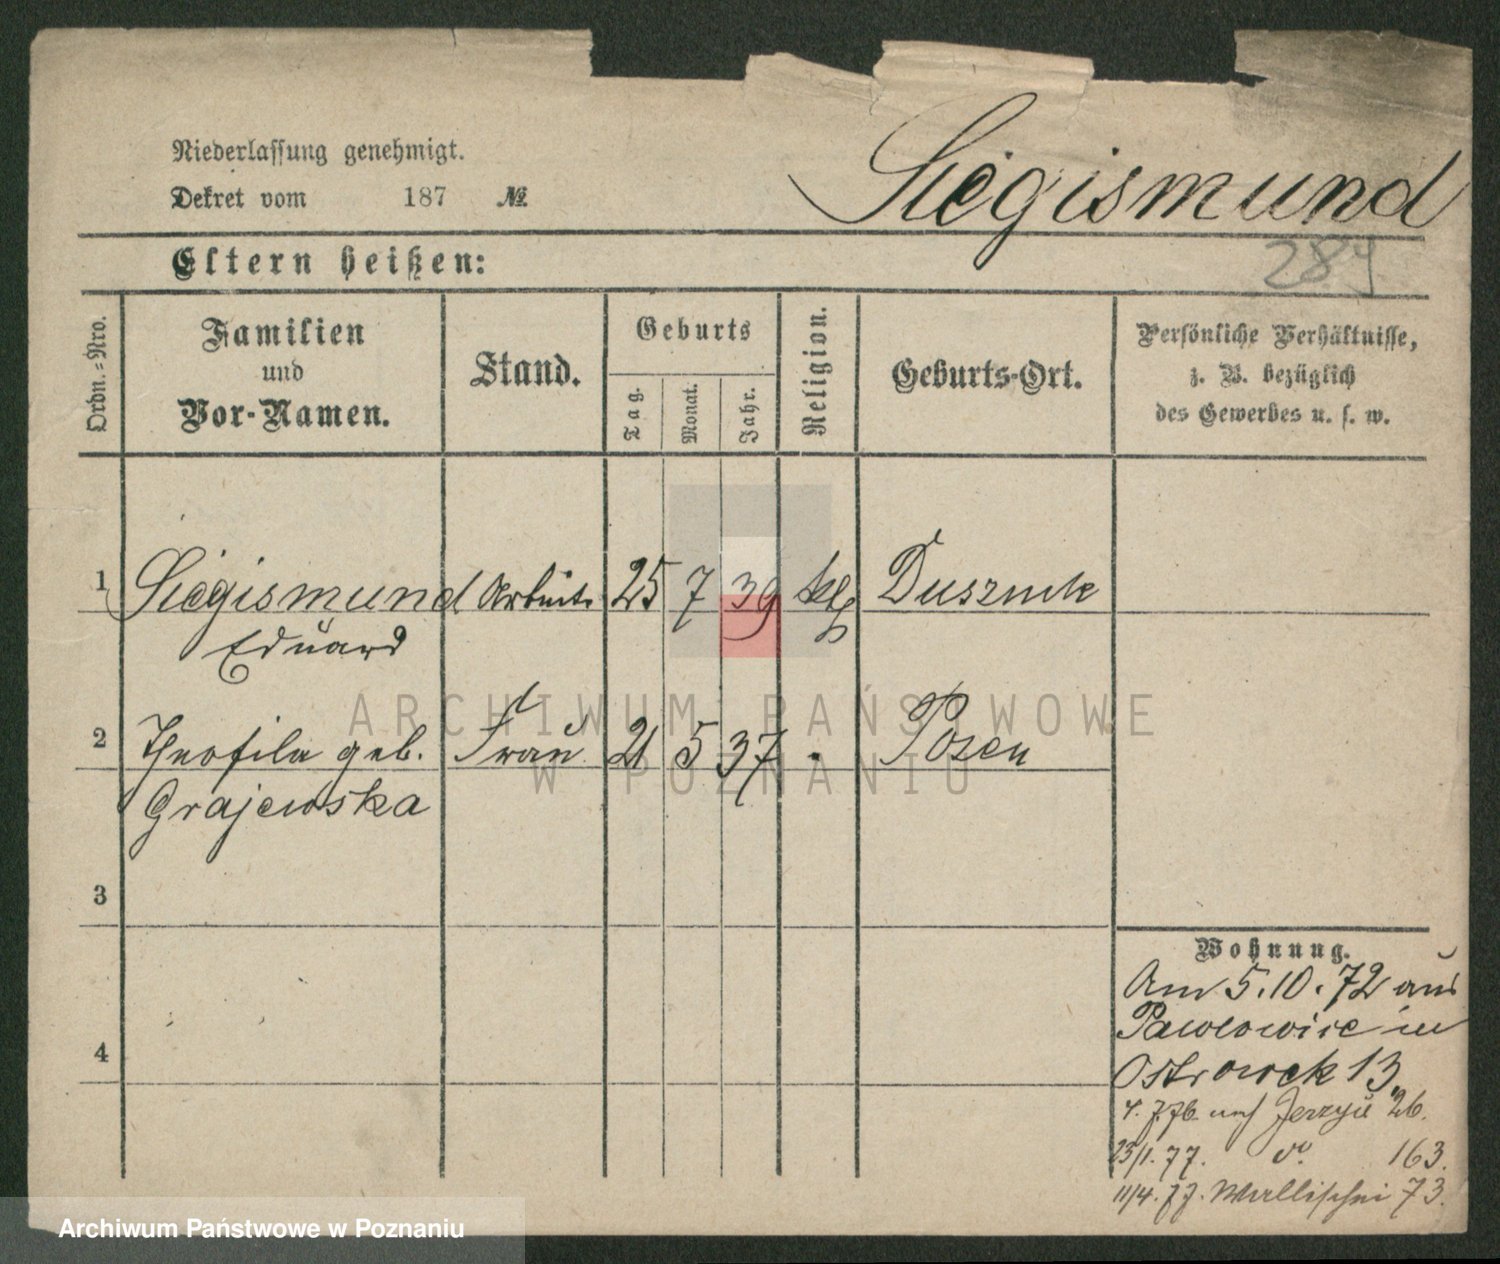 Niederlassung genehmigt.
Dekret vom 187 №
Siegismund
284
Eltern heißen:
Ordn.-Nro.
Familien
und
Vor-Namen.
Stand.
Geburts
Tag.
Monat.
Jahr.
Religion.
Geburts-Ort.
Persönliche Verhältnisse,
z. B. bezüglich
des Gewerbes u. s. w.
1 Siegismund Arbeiter 25 7 39 kth Dusznik
Eduard
2 Theofila geb. Frau 21 5 37 . Posen
Grajewska
3
4
Wohnung.
Am 5.10.72 aus
Pawlowice in
Ostrowek 13.
4.7.76. nach Jerzyce 26.
23/1.77. do 163.
11/4.77. Wallischei 73.
ARCHIWUM PAŃSTWOWE
W POZNANIU
Archiwum Państwowe w Poznaniu